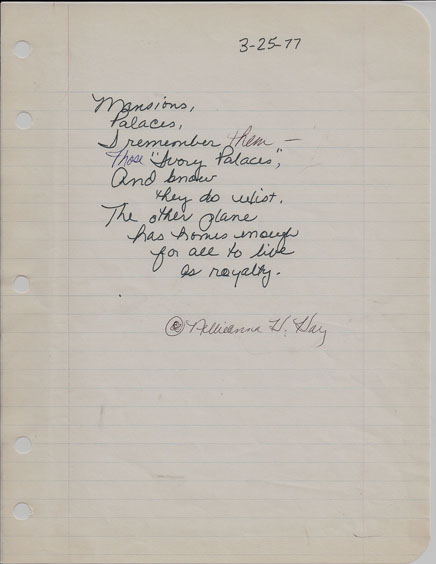 3-25-77
Mansions,
Palaces,
I remember them –
Those "Ivory Palaces",
And know
they do exist.
The other plane
has homes enough
for all to live
as royalty.
© Nellieanna H. Hay